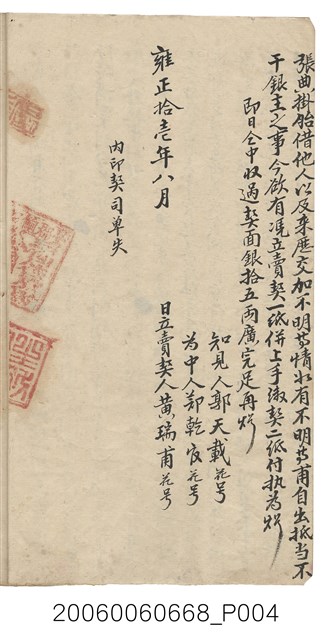 張典掛胎借他人以及來歷交加不明等情如有不明等甫自出抵当不
干銀主之事今欲有凭立賣契一紙併上手海契二紙付执為炤
即日仝中收過契面銀拾五兩廣完足再炤
知見人郭天載花号
為中人鄭乾官花号
日立賣契人黄瑞甫花号
雍正拾壱年八月
內印契司单失
20060060668_P004